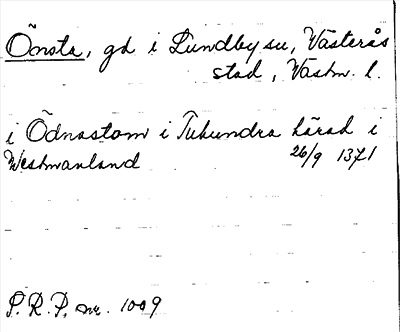 Önsta, gd i Lundby sn, Västerås
stad, Västm. l.
i Ödnastom i Tuhundra härad i
Westmanland 26/9 1371
S.R.P. nr. 1009